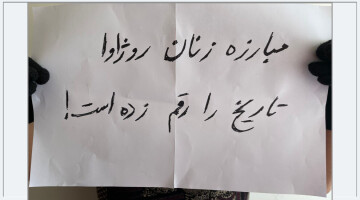 مبارزه زنان روژاوا
تاریخ را رقم زده است!